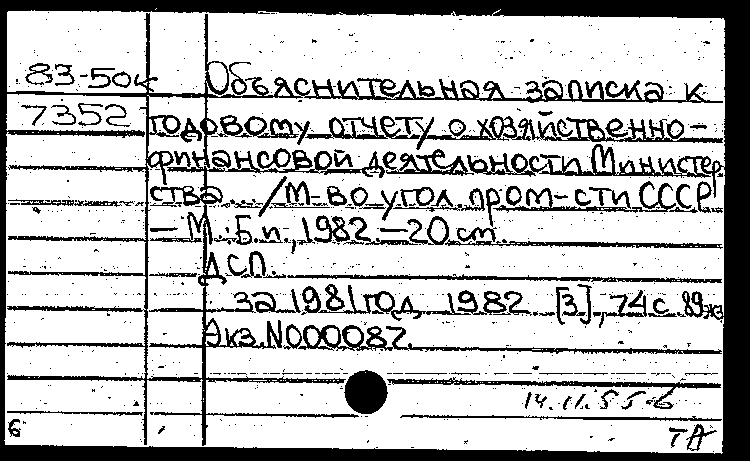 83-50к Объяснительная записка к
7352 годовому отчету о хозяйственно-
финансовой деятельности Министер
ства... /М-во угол. пром-сти СССР
— М.: Б.и., 1982.—20 см.
ДСП.
за 1981 год 1982 [3], 74 с. 89 экз
Экз. N000087.
14.11.55-6
6 ТА